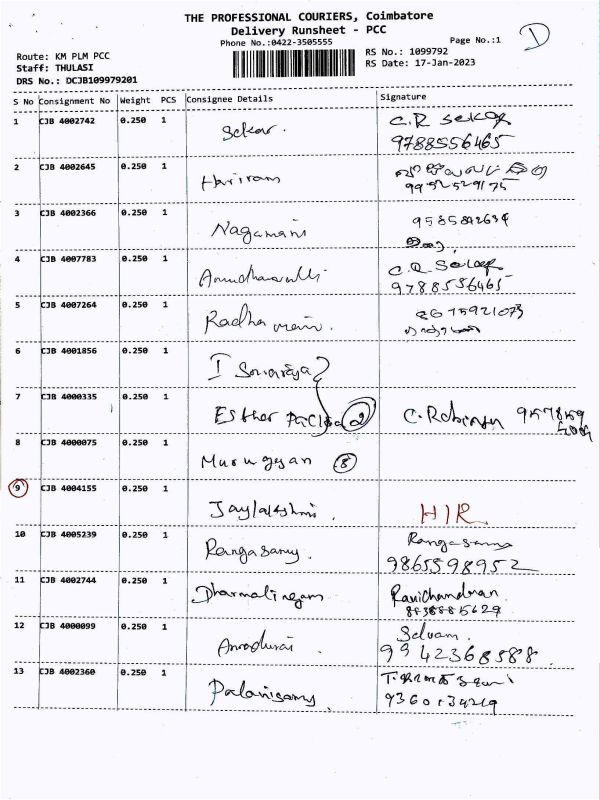 THE PROFESSIONAL COURIERS, Coimbatore
Delivery Runsheet - PCC
Phone No.:0422-3505555
Page No.:1
D
Route: KM PLM PCC
Staff: THULASI
DRS No.: DCJB109979201
RS No.: 1099792
RS Date: 17-Jan-2023
S No Consignment No Weight PCS Consignee Details Signature
1 CJB 4002742 0.250 1 Sekar. C.R Sekar
9788556465
2 CJB 4002645 0.250 1 Hariram
9952529175
3 CJB 4002366 0.250 1 Nagamani
4 CJB 4007783 0.250 1 C.R. Sekar
9788556465
5 CJB 4007264 0.250 1 Radha mani.
6 CJB 4001856 0.250 1 I
7 CJB 4000335 0.250 1 Esther 2 C. Robinson
8 CJB 4000075 0.250 1 Murugesan 8
9 CJB 4004155 0.250 1 Jaylakshmi. H/R
10 CJB 4005239 0.250 1 Rangasamy. Rangasamy
9865598952
11 CJB 4002744 0.250 1 Dharmalingam Ravichandran
12 CJB 4000099 0.250 1 Annadurai Selvam.
9942368588
13 CJB 4002360 0.250 1 Palanisamy
9360134219